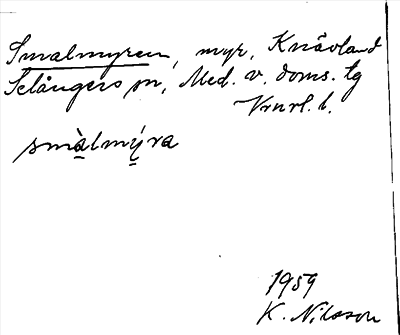 Smalmyren, myr, Knävland
Selångers sn, Med. v. doms. tg
Vrnrl. l.
smàlmýra
1959
K. Nilsson